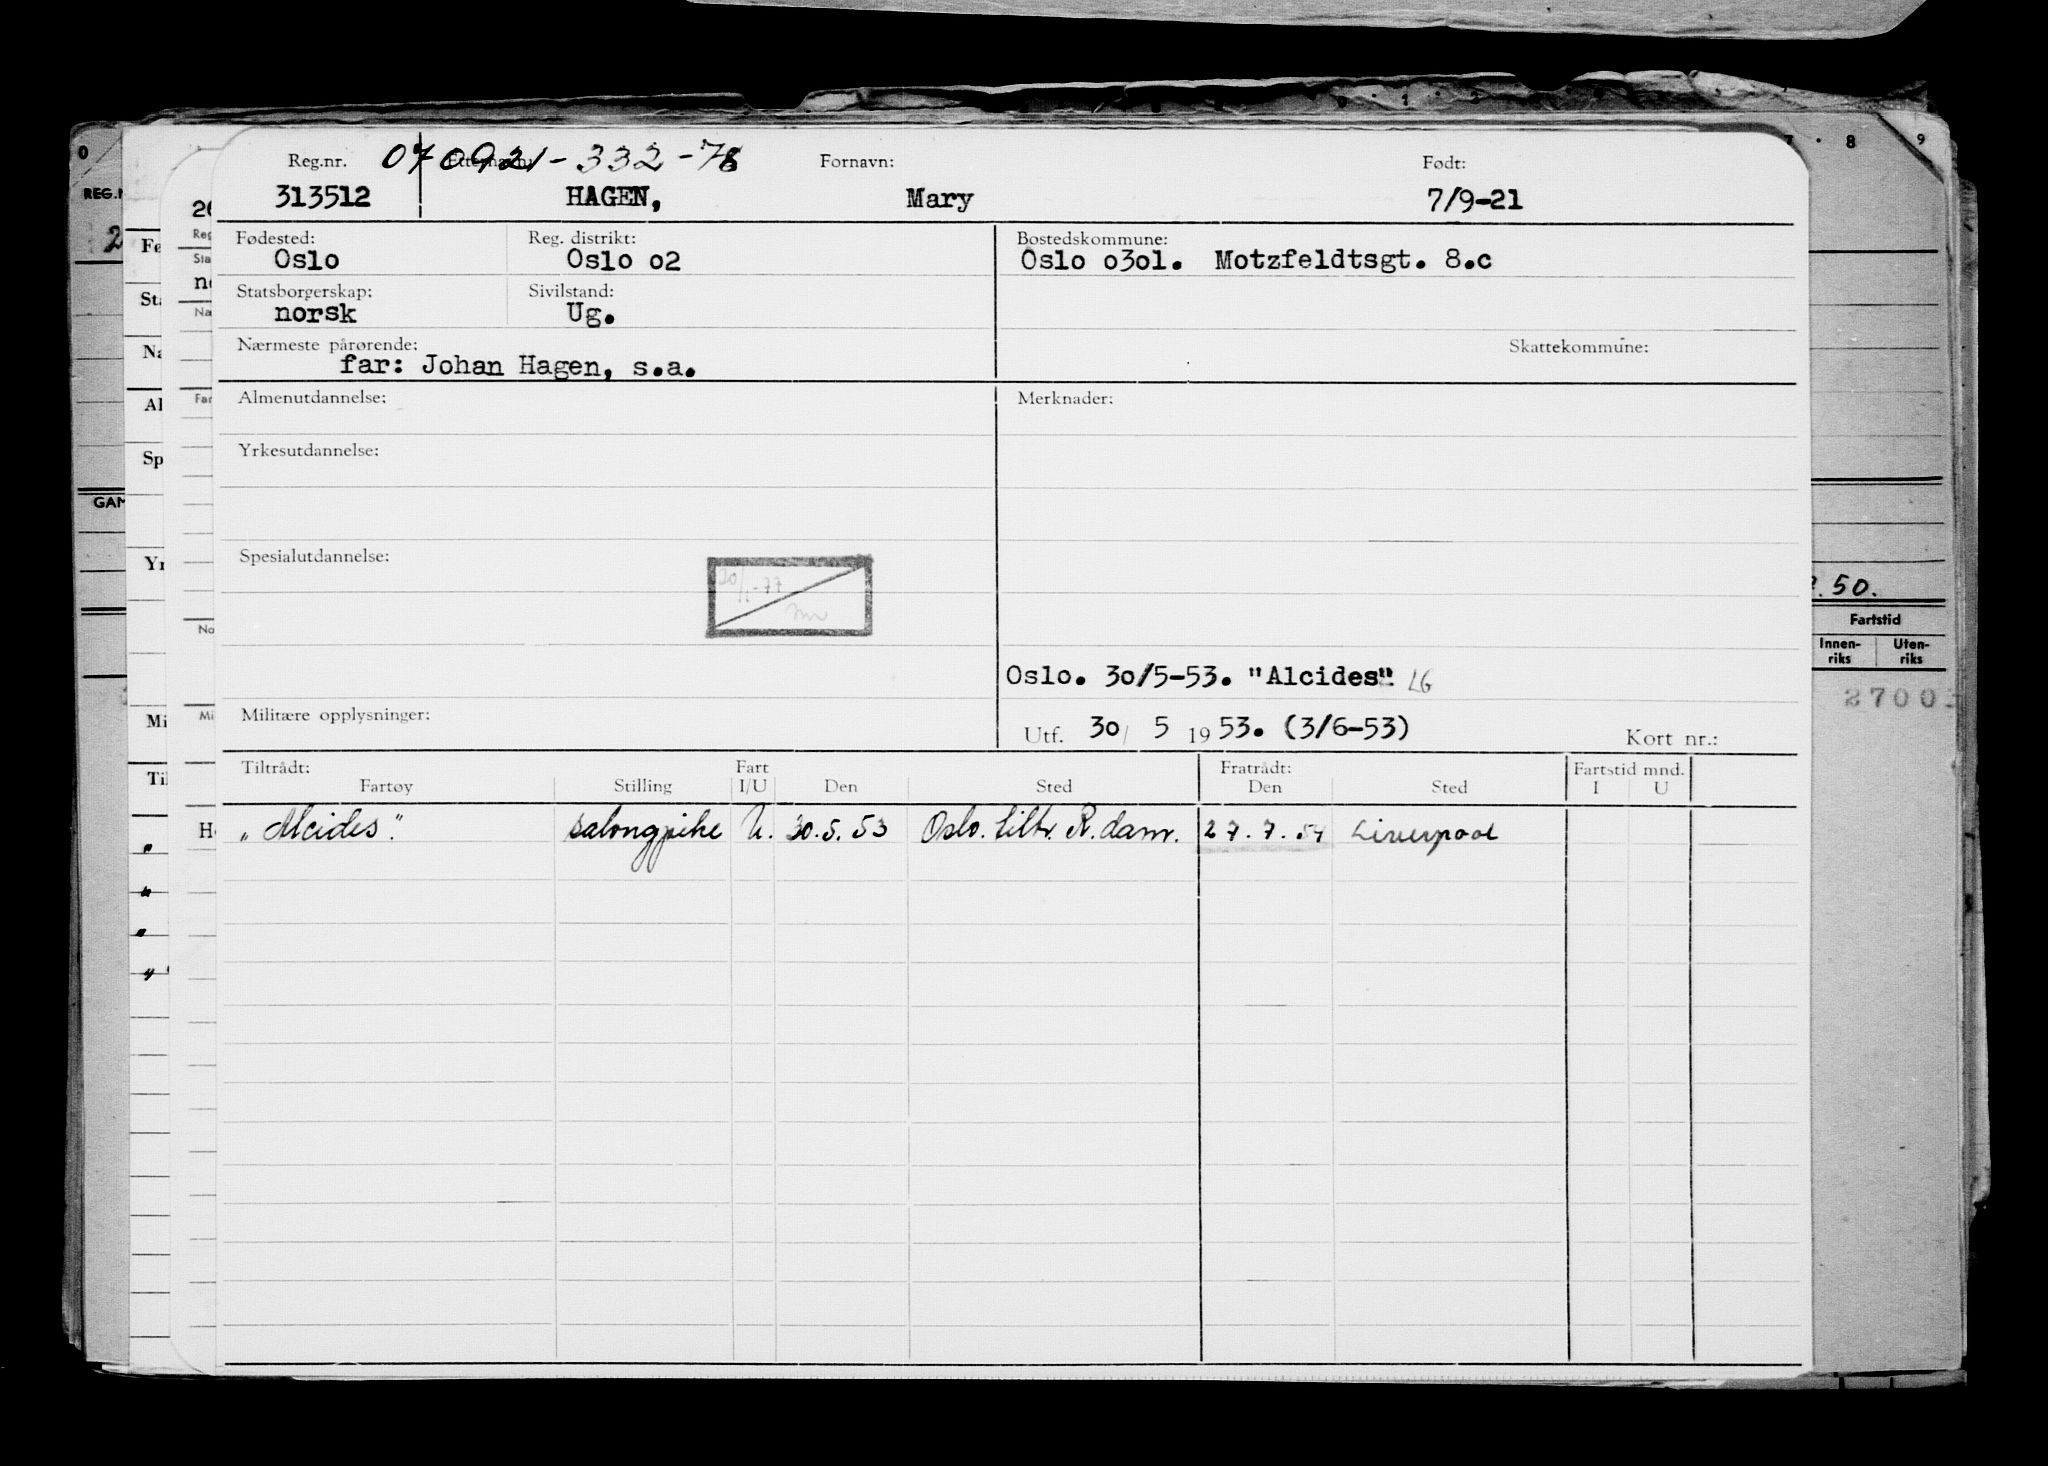 Reg.nr. 070921-332-78 Fornavn: Født:
313512 HAGEN, Mary 7/9-21
Fødested: Reg. distrikt: Bostedskommune:
Oslo Oslo o2 Oslo o3o1. Motzfeldtsgt. 8.c
Statsborgerskap: Sivilstand:
norsk Ug.
Nærmeste pårørende: Skattekommune:
far: Johan Hagen, s.a.
Almenutdannelse: Merknader:
Yrkesutdannelse:
Spesialutdannelse:
Oslo. 30/5-53. "Alcides" LG
Militære opplysninger:
Utf. 30/ 5 1953. (3/6-53) Kort nr.:
Tiltrådt: Fart Fratrådt: Fartstid mnd.
Fartøy Stilling I/U Den Sted Den Sted I U
„Alcides". salongpike U. 30.5.53 Oslo. tiltr. R.dam. 27.7.54 Liverpool
0 8 9
.50.
Fartstid
Innen-riks Uten-riks
2700